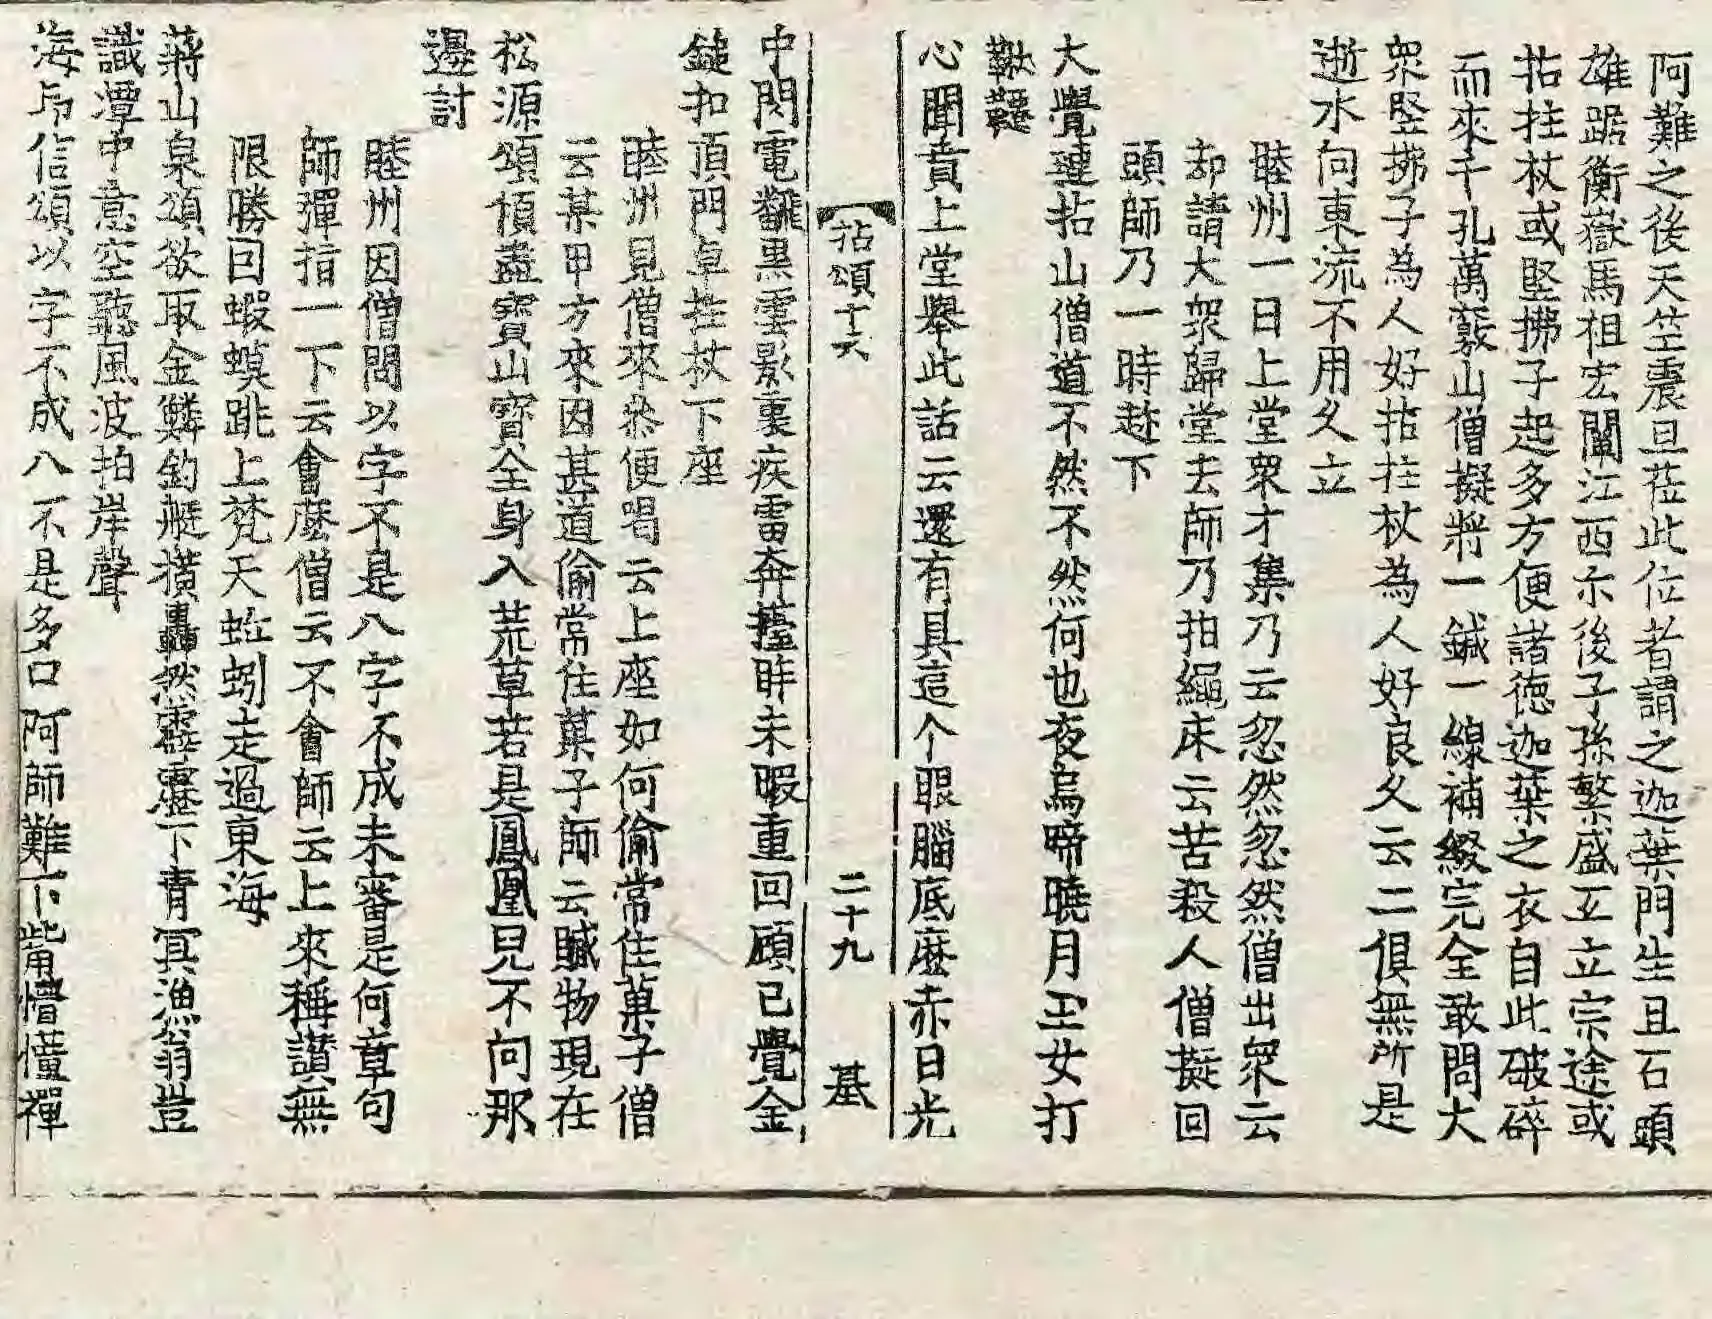 阿難之後天竺震旦莅此位者謂之迦葉門生且石頭
雄踞衡嶽馬祖宏闡江西尒後子孫繁盛互立宗途或
拈拄杖或竪拂子起多方便諸德迦葉之衣自此破碎
而來千孔萬竅山僧擬將一鍼一線補綴完全敢問大
衆竪拂子為人好拈拄杖為人好良久云二俱無所是
逝水向東流不用久立
睦州一日上堂衆才集乃云忽然忽然僧出衆云
却請大衆歸堂去師乃拍繩床云苦殺人僧擬回
頭師乃一時趂下
大覺璉拈山僧道不然不然何也夜烏啼曉月玉女打
鞦韆
心聞賁上堂舉此話云還有具這个眼腦底麽赤日光
拈頌十六 二十九 基
中閃電飜黒雲影裏疾雷奔擡眸未暇重回顧已覺金
鎚扣頂門卓拄杖下座
睦州見僧來叅便喝云上座如何偷常住菓子僧
云某甲方來因甚道偷常住菓子師云贓物現在
松源頌傾盡寶山寶全身入荒草若是鳳凰兒不向那
邊討
睦州因僧問以字不是八字不成未審是何章句
師彈指一下云會麽僧云不會師云上來稱讃無
限勝回蝦蟆跳上梵天蚯蚓走過東海
蔣山泉頌欲取金鱗釣艇橫轟然霹靂下青冥漁翁豈
識潭中意空聽風波拍岸聲
海印信頌以字不成八不是多口阿師難下觜懵懂禪